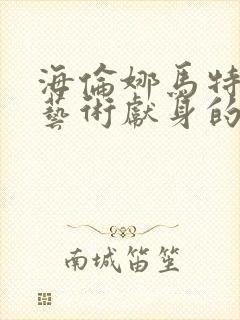 海倫娜馬特
藝術獻身的
南城笛笙